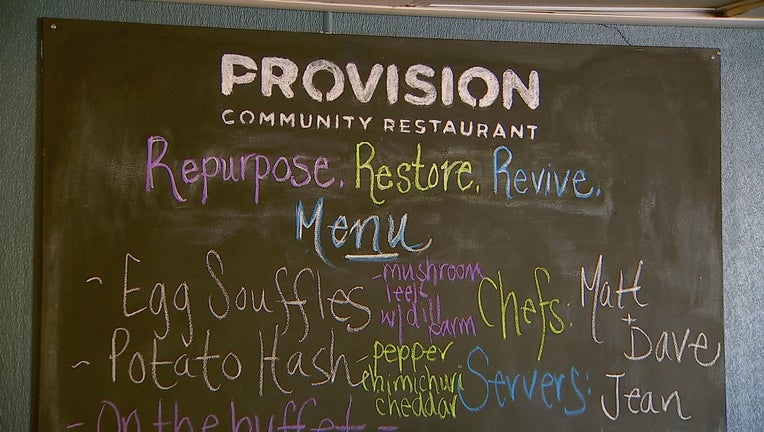 PROVISION
COMMUNITY RESTAURANT
Repurpose. Restore. Revive.
Menu
~ Egg Souffles
-mushroom
leeks
w/dill
parm
~ Potato Hash-
pepper
chimichuri
cheddar
~ On the buffet -
Chefs: Matt
+ Dave
Servers: Jean